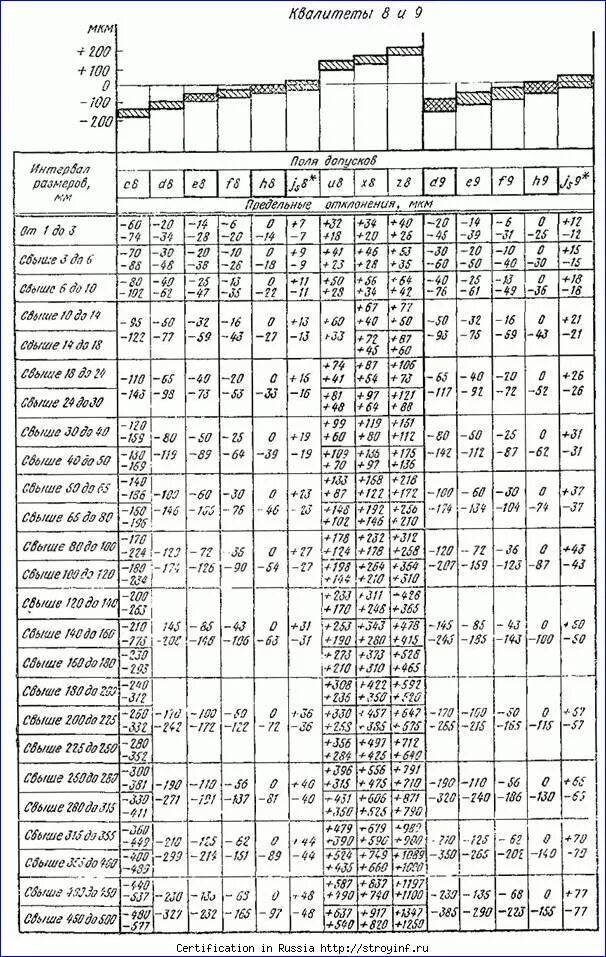 Квалитеты 8 и 9
мкм
+200
+100
0
-100
-200
Интервал размеров, мм
Поля допусков
c8 d8 e8 f8 h8 js8* u8 x8 z8 d9 e9 f9 h9 js9*
Предельные отклонения, мкм
От 1 до 3
-60 -20 -14 -6 0 +7 +32 +34 +40 -20 -14 -6 0 +12
-74 -34 -28 -20 -14 -7 +18 +20 +26 -45 -39 -31 -25 -12
Свыше 3 до 6
-70 -30 -20 -10 0 +9 +41 +46 +53 -30 -20 -10 0 +15
-88 -48 -38 -28 -18 -9 +23 +28 +35 -60 -50 -40 -30 -15
Свыше 6 до 10
-80 -40 -25 -13 0 +11 +50 +56 +64 -40 -25 -13 0 +18
-102 -62 -47 -35 -22 -11 +28 +34 +42 -76 -61 -49 -36 -18
Свыше 10 до 14
+67 +77
-95 -50 -32 -16 0 +13 +60 +40 +50 -50 -32 -16 0 +21
Свыше 14 до 18
-122 -77 -59 -43 -27 -13 +33 +72 +87 -93 -75 -59 -43 -21
+45 +60
Свыше 18 до 24
+74 +87 +106
-110 -65 -40 -20 0 +16 +41 +54 +73 -65 -40 -20 0 +26
Свыше 24 до 30
-143 -98 -73 -53 -33 -16 +81 +97 +121 -117 -92 -72 -52 -26
+48 +64 +88
Свыше 30 до 40
-120 +99 +119 +151
-159 -80 -50 -25 0 +19 +60 +80 +112 -80 -50 -25 0 +31
Свыше 40 до 50
-130 -119 -89 -64 -39 -19 +109 +136 +175 -142 -112 -87 -62 -31
-169 +70 +97 +136
Свыше 50 до 65
-140 +133 +168 +218
-186 -100 -60 -30 0 +23 +87 +122 +172 -100 -60 -30 0 +37
Свыше 65 до 80
-150 -146 -76 -46 -23 +148 +192 +256 -174 -134 -104 -74 -37
-196 +102 +146 +210
Свыше 80 до 100
-170 +178 +232 +312
-224 -72 -36 0 +27 +124 +178 +258 -120 -72 -36 0 +43
Свыше 100 до 120
-180 -174 -126 -90 -54 -27 +198 +264 +364 -207 -159 -123 -87 -43
-234 +144 +210 +310
Свыше 120 до 140
-200 +233 +311 +428
-263 +170 +248 +365
Свыше 140 до 160
-210 -145 -85 -43 0 +31 +253 +343 +478 -145 -85 -43 0 +50
-208 -148 -106 -63 -31 +190 +280 +415 -245 -185 -143 -100 -50
Свыше 160 до 180
-230 +273 +373 +528
-293 +210 +310 +465
Свыше 180 до 200
-240 +308 +422 +592
-312 +236 +350 +520
Свыше 200 до 225
-260 -170 -100 -50 0 +36 +330 +457 +647 -170 -100 -50 0 +57
-332 -242 -172 -122 -72 -36 +385 +575 -265 -215 -165 -115 -57
Свыше 225 до 250
-280 +356 +497 +712
-352 +284 +425 +640
Свыше 250 до 280
-300 +396 +556 +791
-381 -190 -110 -56 0 +40 +315 +475 +710 -190 -110 -56 0 +65
Свыше 280 до 315
-330 -271 -191 -137 -81 -40 +431 +606 +871 -320 -240 -186 -130 -65
-411 +350 +525 +790
Свыше 315 до 355
-360 +479 +679 +989
-449 -210 -125 -62 0 +44 +390 +590 +900 -210 -125 -62 0 +70
Свыше 355 до 400
-400 -299 -214 -151 -89 -44 +524 +749 +1089 -350 -265 -202 -140 -70
-489 +435 +660 +1000
Свыше 400 до 450
-440 +587 +837 +1197
-537 -230 -135 -68 0 +48 +490 +740 +1100 -230 -135 -68 0 +77
Свыше 450 до 500
-480 -327 -232 -165 -97 -48 +637 +917 +1347 -385 -290 -223 -155 -77
-577 +540 +820 +1250
Certification in Russia http://stroyinf.ru